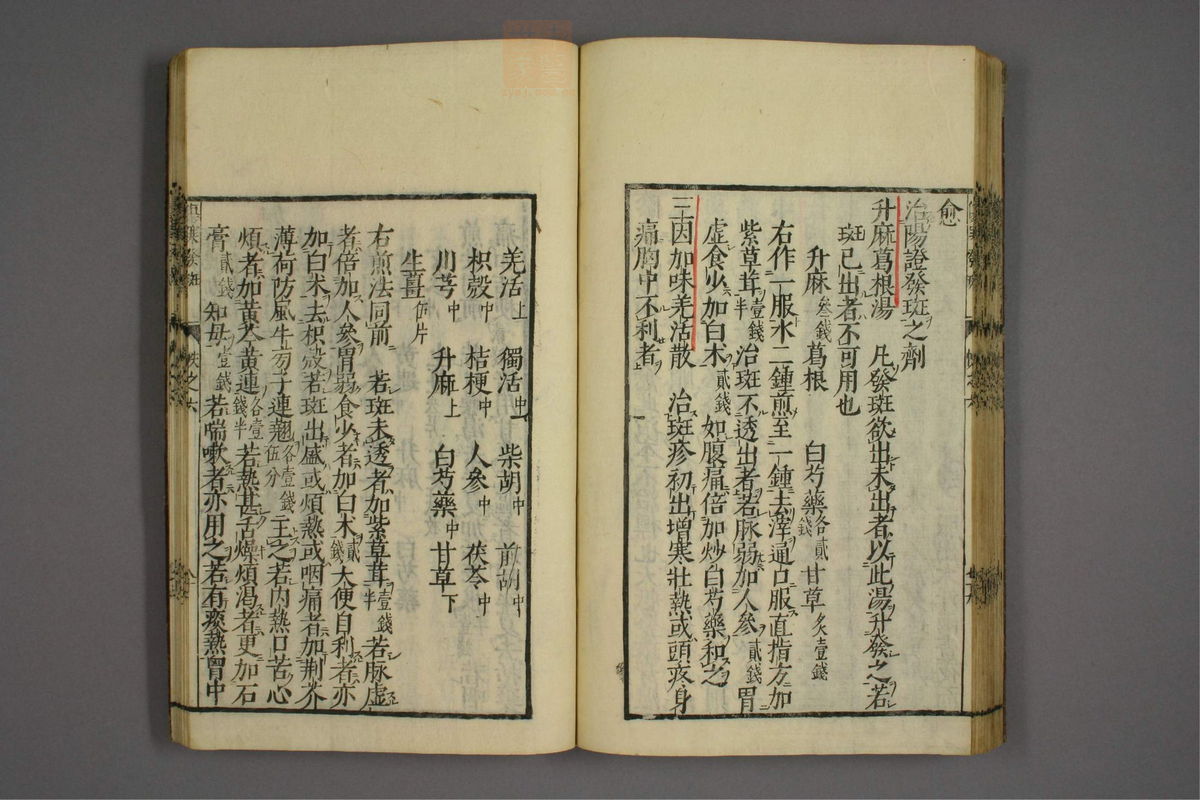 愈
治陽證發斑之劑
升麻葛根湯　凡發斑欲出未出者以此湯升發之若
斑已出者不可用也
升麻叁錢　葛根　白芍藥各貳錢　甘草炙壹錢
右作一服水二鍾煎至一鍾去滓通口服直指方加
紫草茸壹錢半治斑不透出者若脉弱加人參貳錢胃
虛食少加白朮貳錢如腹痛倍加炒白芍藥和之
三因加味羌活散　治斑疹初出增寒壯熱或頭疼身
痛胸中不利者
羌活上　獨活中　柴胡中　前胡中
枳殼中　桔梗中　人參中　茯苓中
川芎中　升麻上　白芍藥中　甘草下
生薑伍片
右煎法同前　若斑未透者加紫草茸壹錢半若脉虛
者倍加人參胃弱食少者加白朮貳錢大便自利者亦
加白朮去枳殼若斑出盛或煩熱或咽痛者加荆芥
薄荷防風牛蒡子連翹各壹錢伍分主之若內熱口苦心
煩者加黃芩黃連各壹錢半若熱甚舌燥煩渴者更加石
膏貳錢　知母壹錢　若喘嗽者亦用之若有痰熱胷中
帙之六